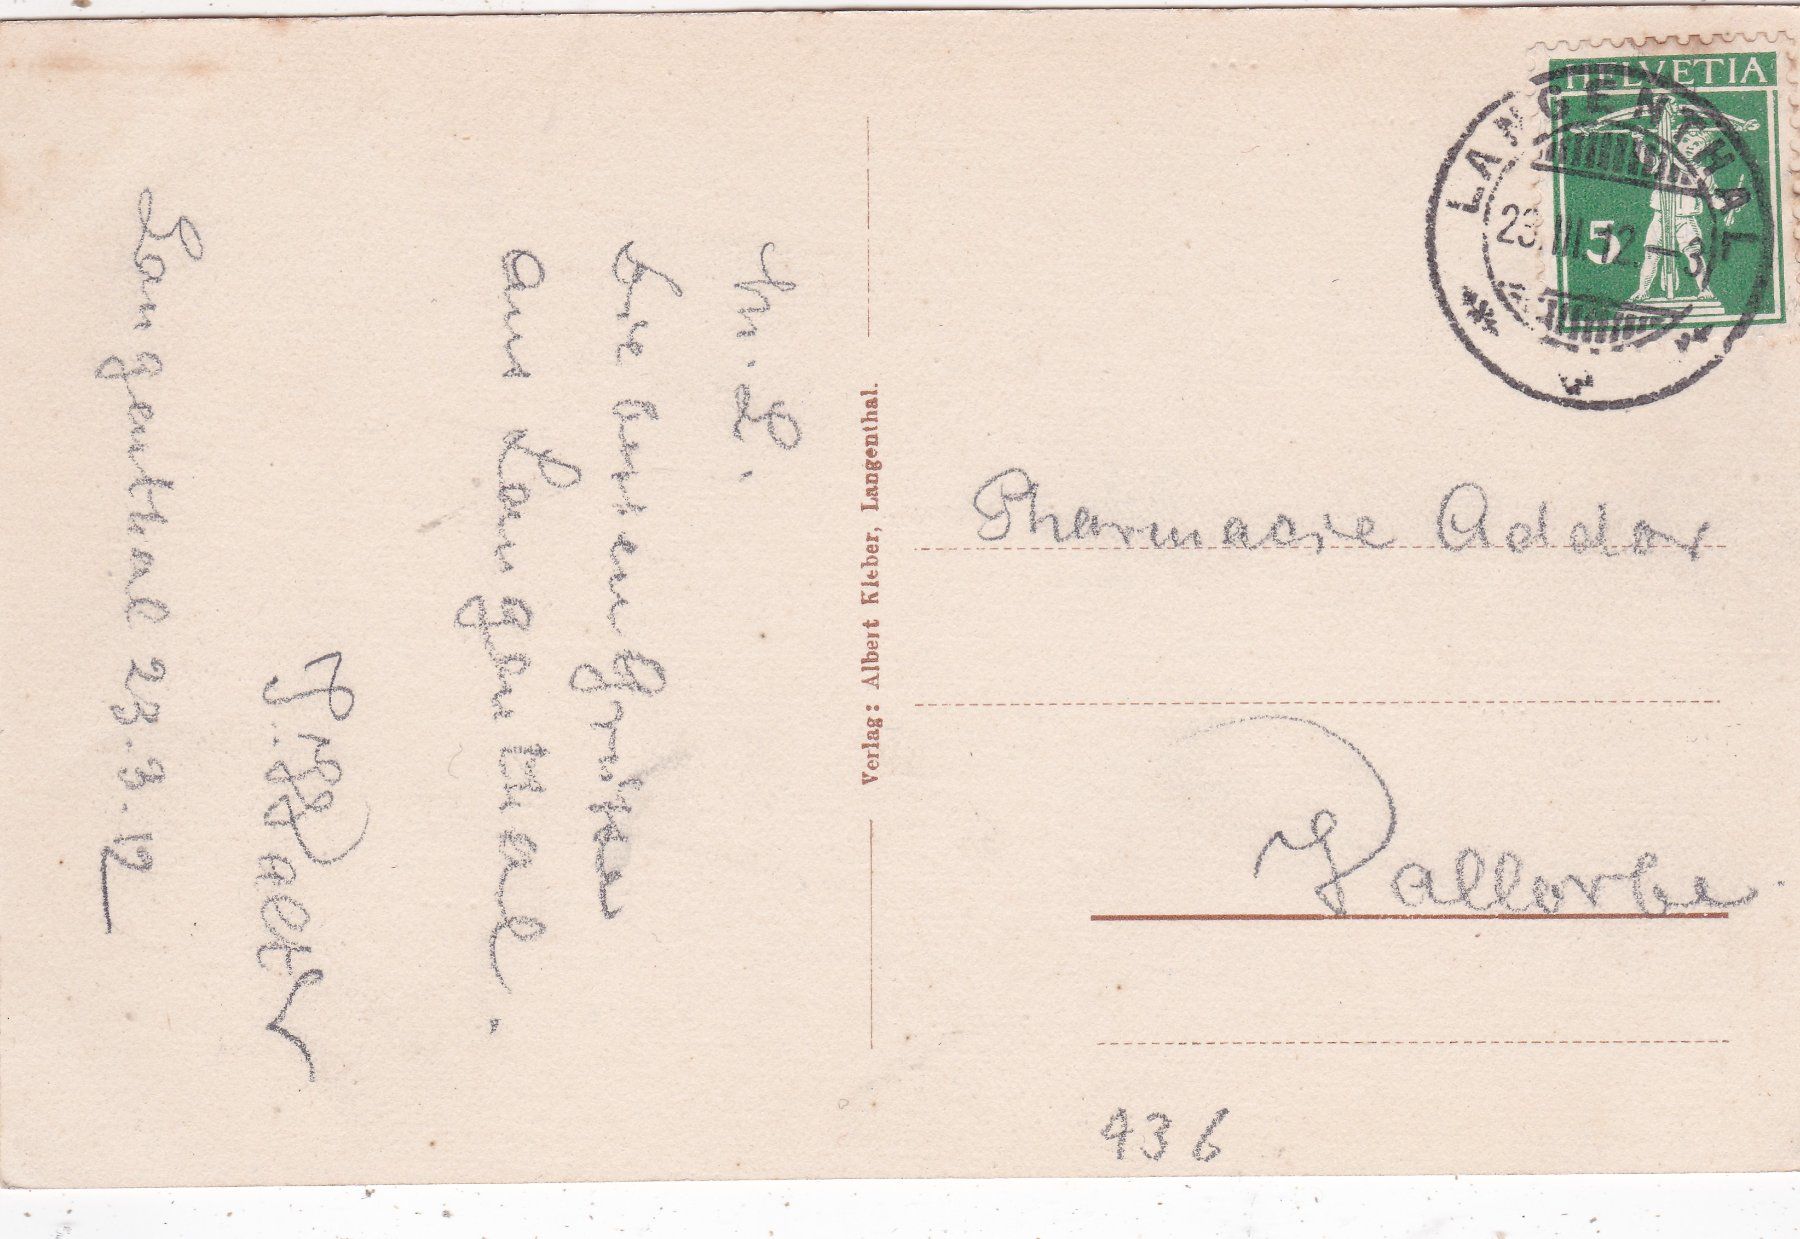 HELVETIA
5
LANGENTHAL
23.III.12.-3
M. L.
Die besten Grüsse
aus Langenthal.
Langenthal 23.3.12
Verlag: Albert Kleber, Langenthal.
Pharmacie Addor
Vallorbe
436